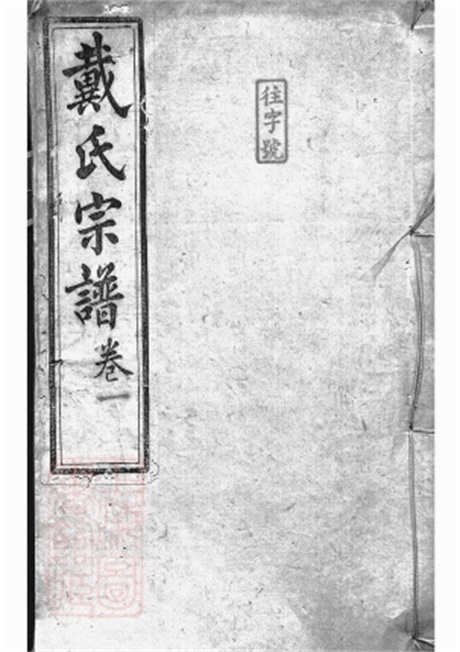 往字號
戴氏宗譜卷一